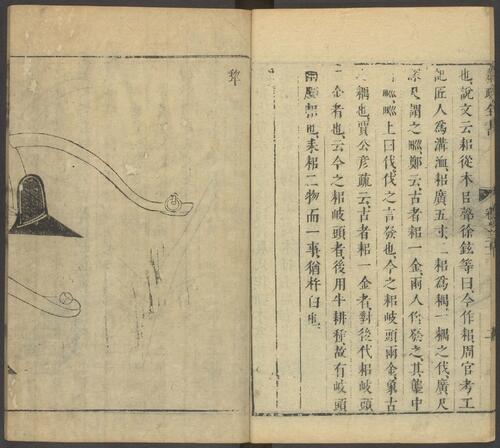 也說文云耜從木㠯聲徐鉉等曰今作耜周官考工
記匠人爲溝洫耜廣五寸二耜爲耦一耦之伐廣尺
深尺謂之𤰕鄭云古者耜一金兩人併發之其壟中
曰𤰕𤰕上曰伐伐之言發也今之耜岐頭兩金象古
之耦也賈公彥疏云古者耜一金者對後代耜岐頭
二金者也云今之耜岐頭者後用牛耕種故有岐頭
兩腳耜也耒耜二物而一事猶杵臼也
犂